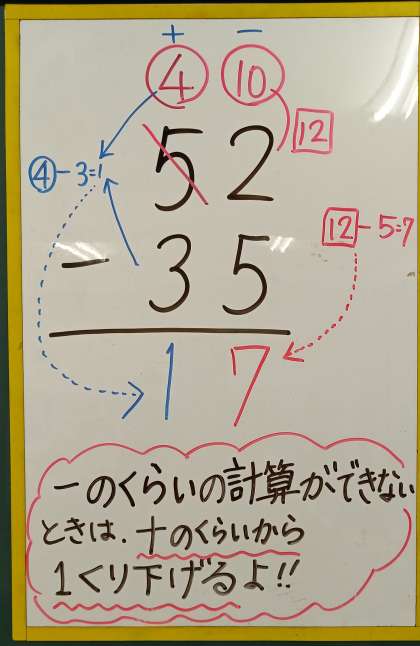 十 一
4 10
12
52
④-3=1
12-5=7
-35
17
一のくらいの計算ができない
ときは、十のくらいから
1くり下げるよ!!